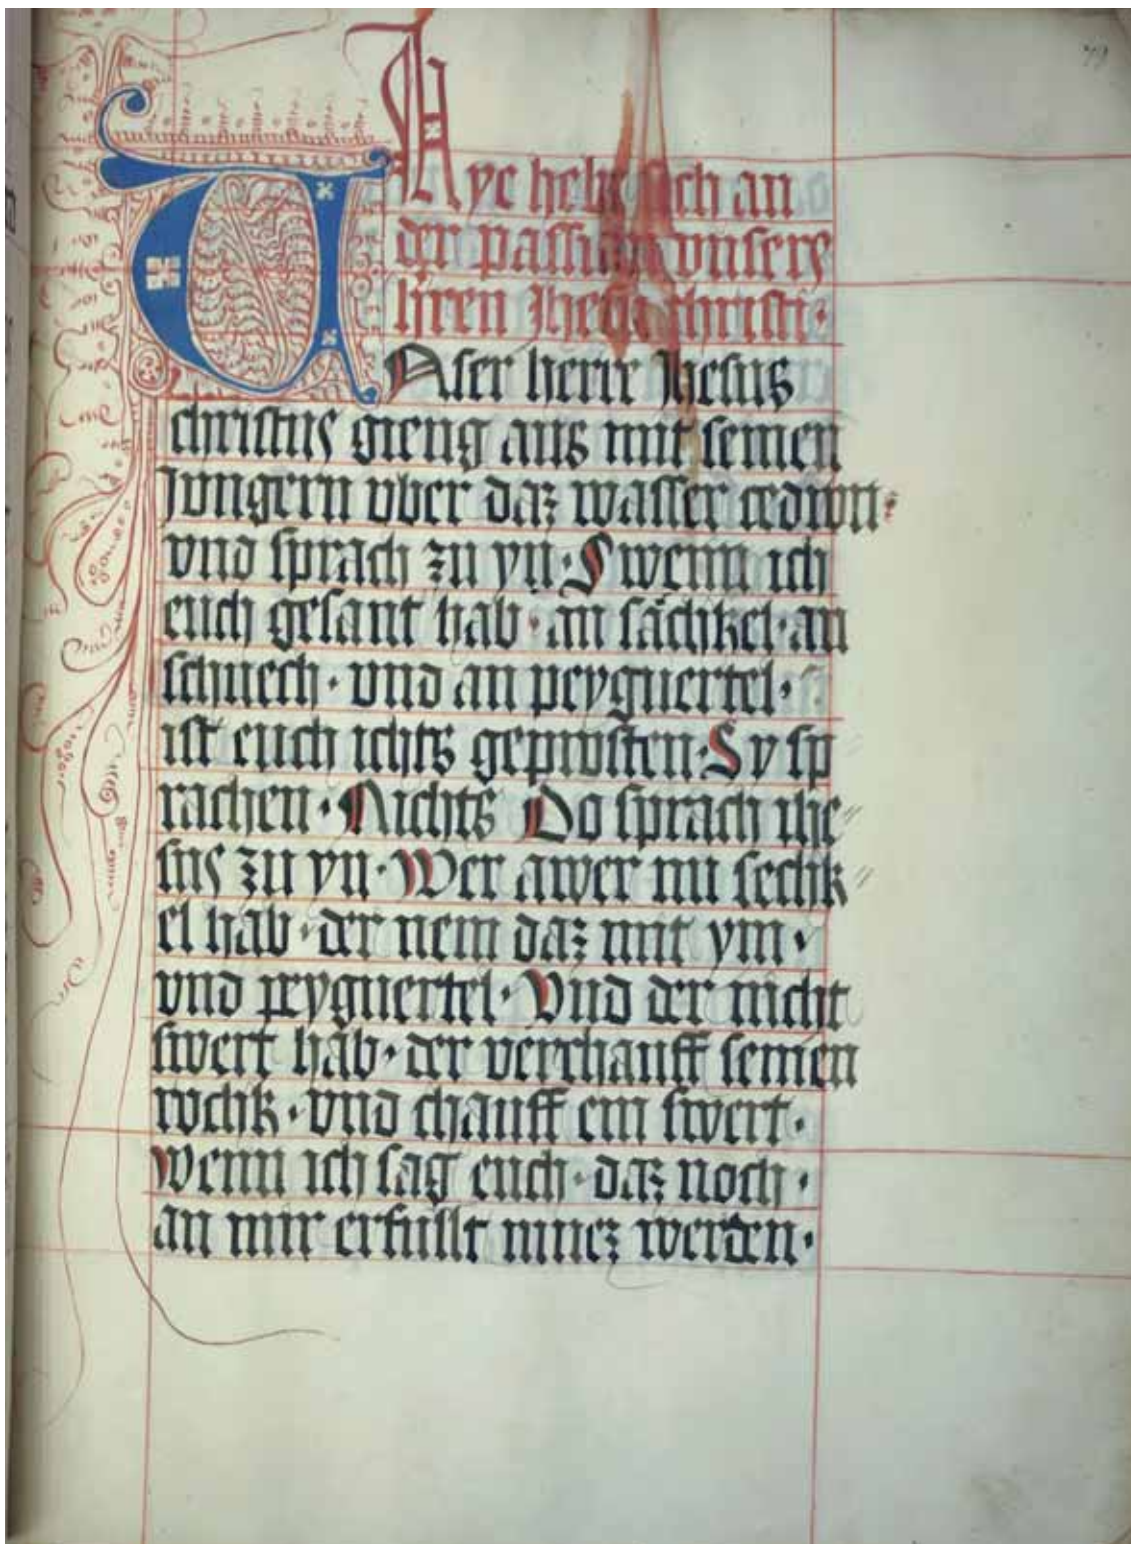 79
Hye hebt sich an
der passion vnsers
hren Jhesu christi·
UNser herr Jhesus
christus gieng aus mit seinen
Jungern vber daz wasser cedron·
vnd sprach zu yn· Swenn ich
euch gesant hab· an sächkel· an
schuech· vnd an peyguertel·
ist euch ichts geprosten· Sy sp
rachen· Nichts Do sprach ihe
sus zu yn· Wer awer nu sechk
el hab· der nem daz mit ym·
vnd peyguertel· Vnd der nicht
swert hab· der verchauff seinen
rochk· vnd chauff ein swert·
Wenn ich sag euch· daz noch·
an mir erfullt muez werden·